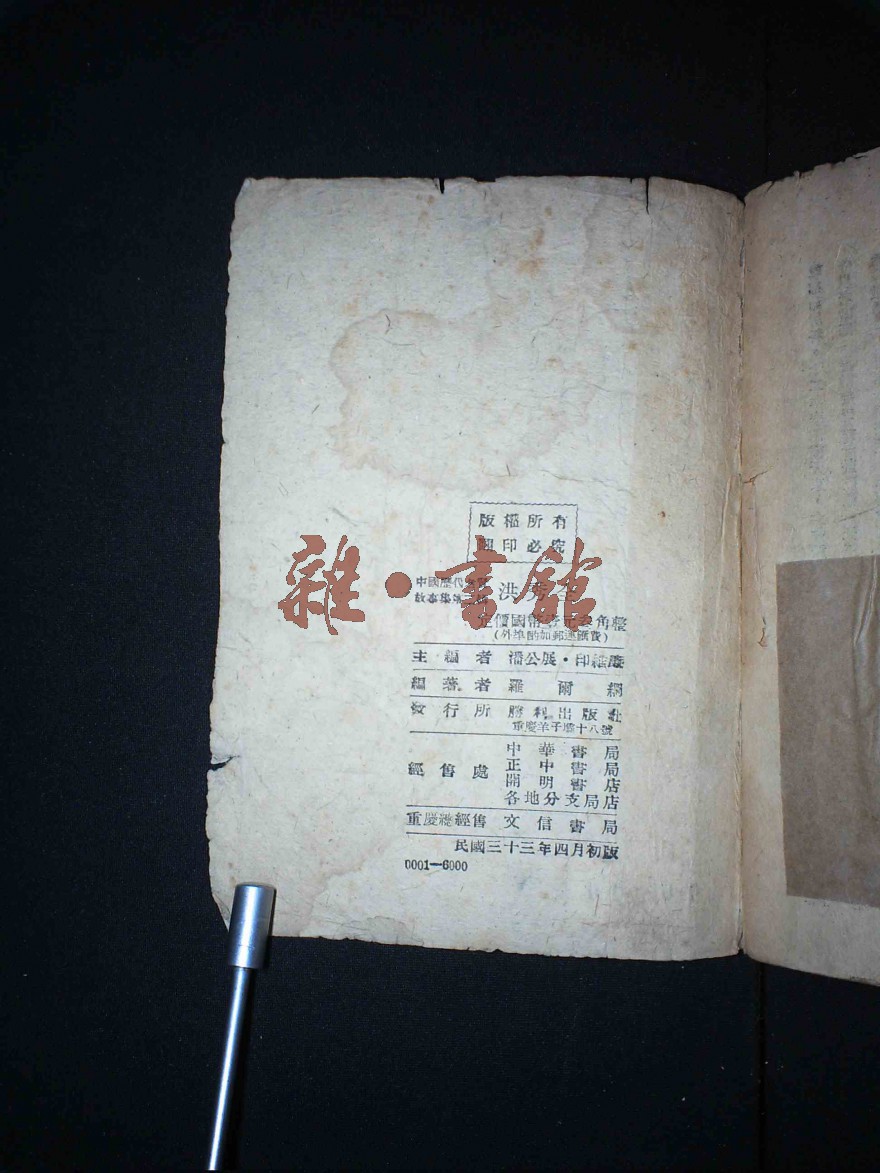 版權所有
印必究
雜·書館
中國歷代
故事集第
洪秀全
定價國幣元角整
(外埠酌加郵運匯費)
主編者 潘公展·印維廉
編著者 羅爾綱
發行所 勝利出版社
重慶羊子壩十八號
經售處
中華書局
正中書局
開明書店
各地分支局店
重慶總經售 文信書局
民國三十三年四月初版
0001—6000